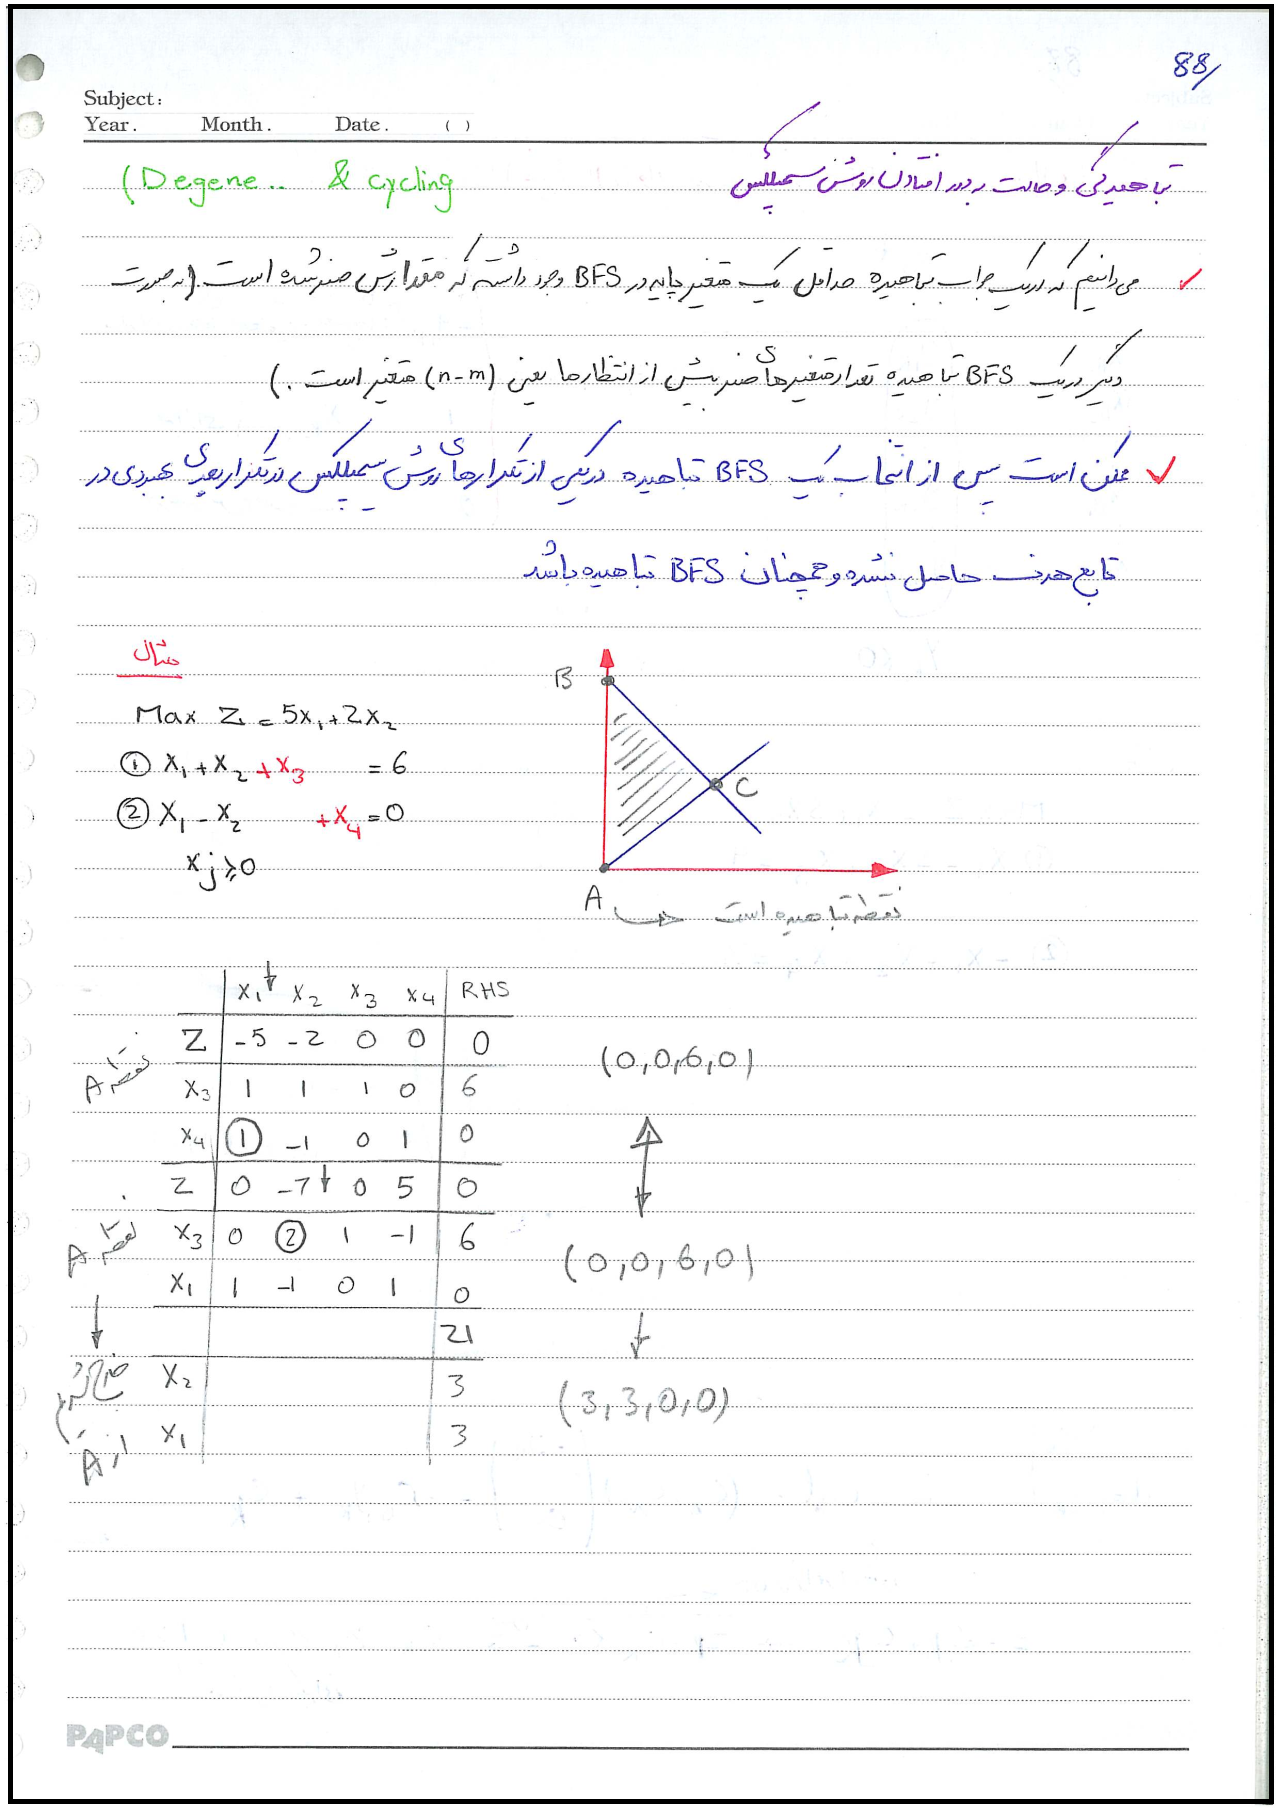 88/
Subject:
Year. Month. Date. ( )
تباهیدگی و حالت به دور افتادن روش سیمپلکس
(Degene.. & cycling
می‌دانیم که در یک جواب تباهیده حداقل یک متغیر پایه در BFS وجود داشته که مقدارش صفر شده است. (به صورت
دیگر در یک BFS تباهیده تعداد متغیرهای صفر بیش از انتظار ما یعنی (n-m) متغیر است.)
ممکن است پس از انتخاب یک BFS تباهیده در یکی از تکرارهای روش سیمپلکس در تکرار بعدی بهبودی در
تابع هدف حاصل نشده و همچنان BFS تباهیده باشد
مثال
Max Z = 5x₁+2x₂
① x₁+x₂+x₃ =6
② x₁-x₂ +x₄=0
xj≥0
B
C
A
نقطه تباهیده است
x₁↓ x₂ x₃ x₄ RHS
Z -5 -2 0 0 0
نقطه A
(0,0,6,0)
x₃ 1 1 1 0 6
x₄ ① -1 0 1 0
Z 0 -7↓ 0 5 0
نقطه A
x₃ 0 ② 1 -1 6
(0,0,6,0)
x₁ 1 -1 0 1 0
21
x₂ 3
(3,3,0,0)
x₁ 3
از A
PAPCO